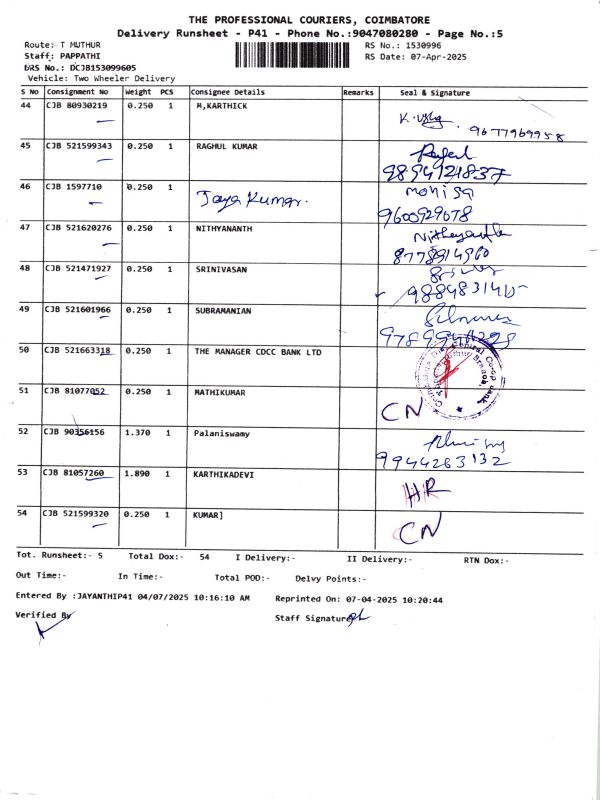 THE PROFESSIONAL COURIERS, COIMBATORE
Delivery Runsheet - P41 - Phone No.:9047080280 - Page No.:5
Route:- T MUTHUR RS No.: 1530996
Staff: PAPPATHI RS Date: 07-Apr-2025
DRS No.: DCJB153099605
Vehicle: Two Wheeler Delivery
S No Consignment No Weight PCS Consignee Details Remarks Seal & Signature
44 CJB 80930219 0.250 1 M,KARTHICK
9677969958
45 CJB 521599343 0.250 1 RAGHUL KUMAR
9894121837
46 CJB 1597710 0.250 1 Jaya Kumar. monisa
9600929078
47 CJB 521620276 0.250 1 NITHYANANTH
8778914960
48 CJB 521471927 0.250 1 SRINIVASAN
49 CJB 521601966 0.250 1 SUBRAMANIAN
50 CJB 521663318 0.250 1 THE MANAGER CDCC BANK LTD
51 CJB 81077052 0.250 1 MATHIKUMAR CN
52 CJB 90356156 1.370 1 Palaniswamy
9944263132
53 CJB 81057260 1.890 1 KARTHIKADEVI HR
54 CJB 521599320 0.250 1 KUMAR] CN
Tot. Runsheet:- 5 Total Dox:- 54 I Delivery:- II Delivery:- RTN Dox:-
Out Time:- In Time:- Total POD:- Delvy Points:-
Entered By :JAYANTHIP41 04/07/2025 10:16:10 AM Reprinted On: 07-04-2025 10:20:44
Verified By Staff Signature